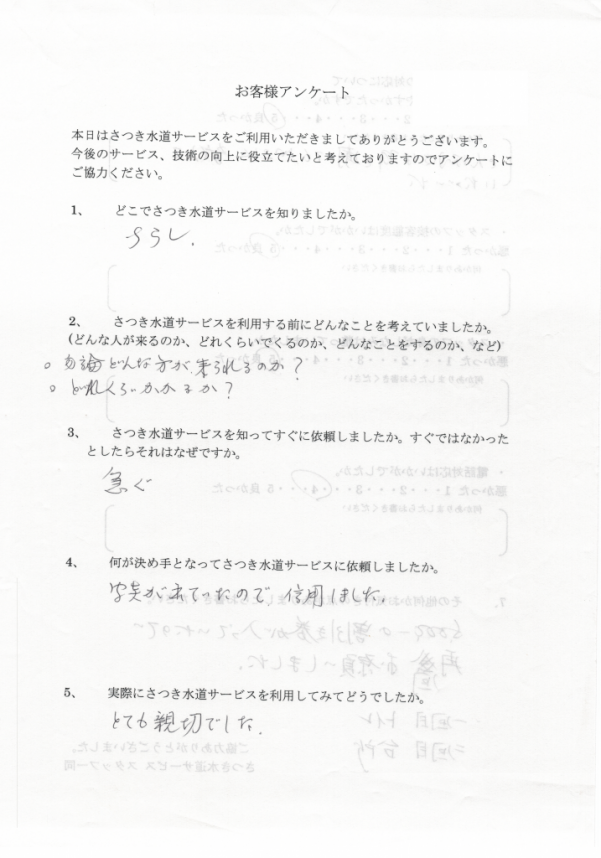 お客様アンケート
本日はさつき水道サービスをご利用いただきましてありがとうございます。
今後のサービス、技術の向上に役立てたいと考えておりますのでアンケートに
ご協力ください。
1、 どこでさつき水道サービスを知りましたか。
ちらし、
2、 さつき水道サービスを利用する前にどんなことを考えていましたか。
(どんな人が来るのか、どれくらいでくるのか、どんなことをするのか、など)
○ 勿論どんな方が来られるのか?
○ どれくらいかかるか?
3、 さつき水道サービスを知ってすぐに依頼しましたか。すぐではなかった
としたらそれはなぜですか。
急ぐ
4、 何が決め手となってさつき水道サービスに依頼しましたか。
写真がのっていたので 信用しました。
5、 実際にさつき水道サービスを利用してみてどうでしたか。
とても親切でした。